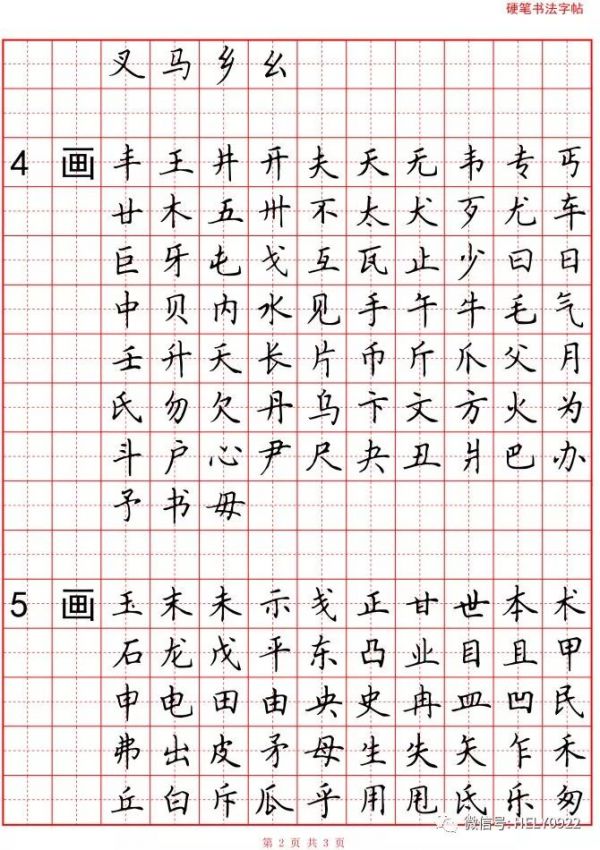 硬笔书法字帖
叉马乡幺
4 画 丰王井开夫天无韦专丐
廿木五卅不太犬歹尤车
巨牙屯戈互瓦止少曰日
中贝内水见手午牛毛气
壬升夭长片币斤爪父月
氏勿欠丹乌卞文方火为
斗户心尹尺夬丑爿巴办
予书毋
5 画 玉末未示戋正甘世本术
石龙戊平东凸业目且甲
申电田由央史冉皿凹民
弗出皮矛母生失矢乍禾
丘白斥瓜乎用甩氐乐匆
微信号: HELY0922
第 2 页 共 3 页